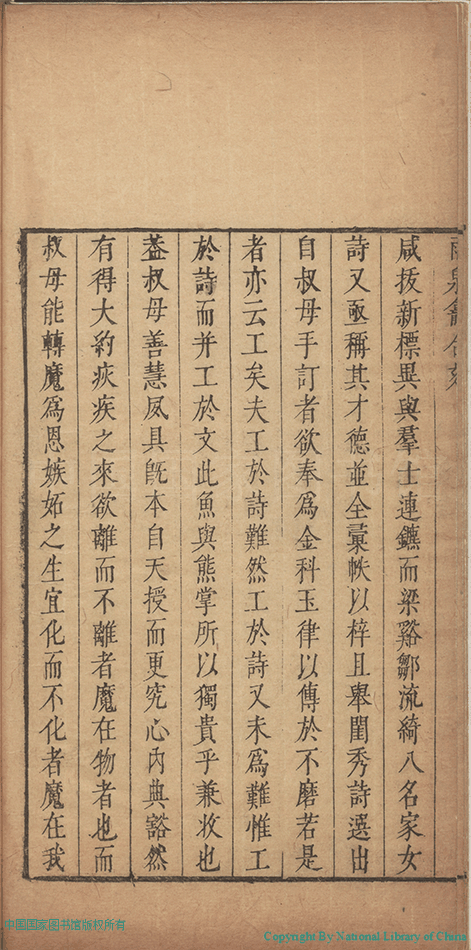 咸拔新標異與羣士連鑣而梁谿鄒流綺八名家女
詩又亟稱其才德並全彚帙以梓且舉閨秀詩選出
自叔母手訂者欲奉爲金科玉律以傳於不磨若是
者亦云工矣夫工於詩難然工於詩又未爲難惟工
於詩而并工於文此魚與熊掌所以獨貴乎兼收也
葢叔母善慧夙具旣本自天授而更究心內典豁然
有得大約疢疾之來欲離而不離者魔在物者也而
叔母能轉魔爲恩嫉妬之生宜化而不化者魔在我
中国国家图书馆版权所有
Copyright By National Library of China